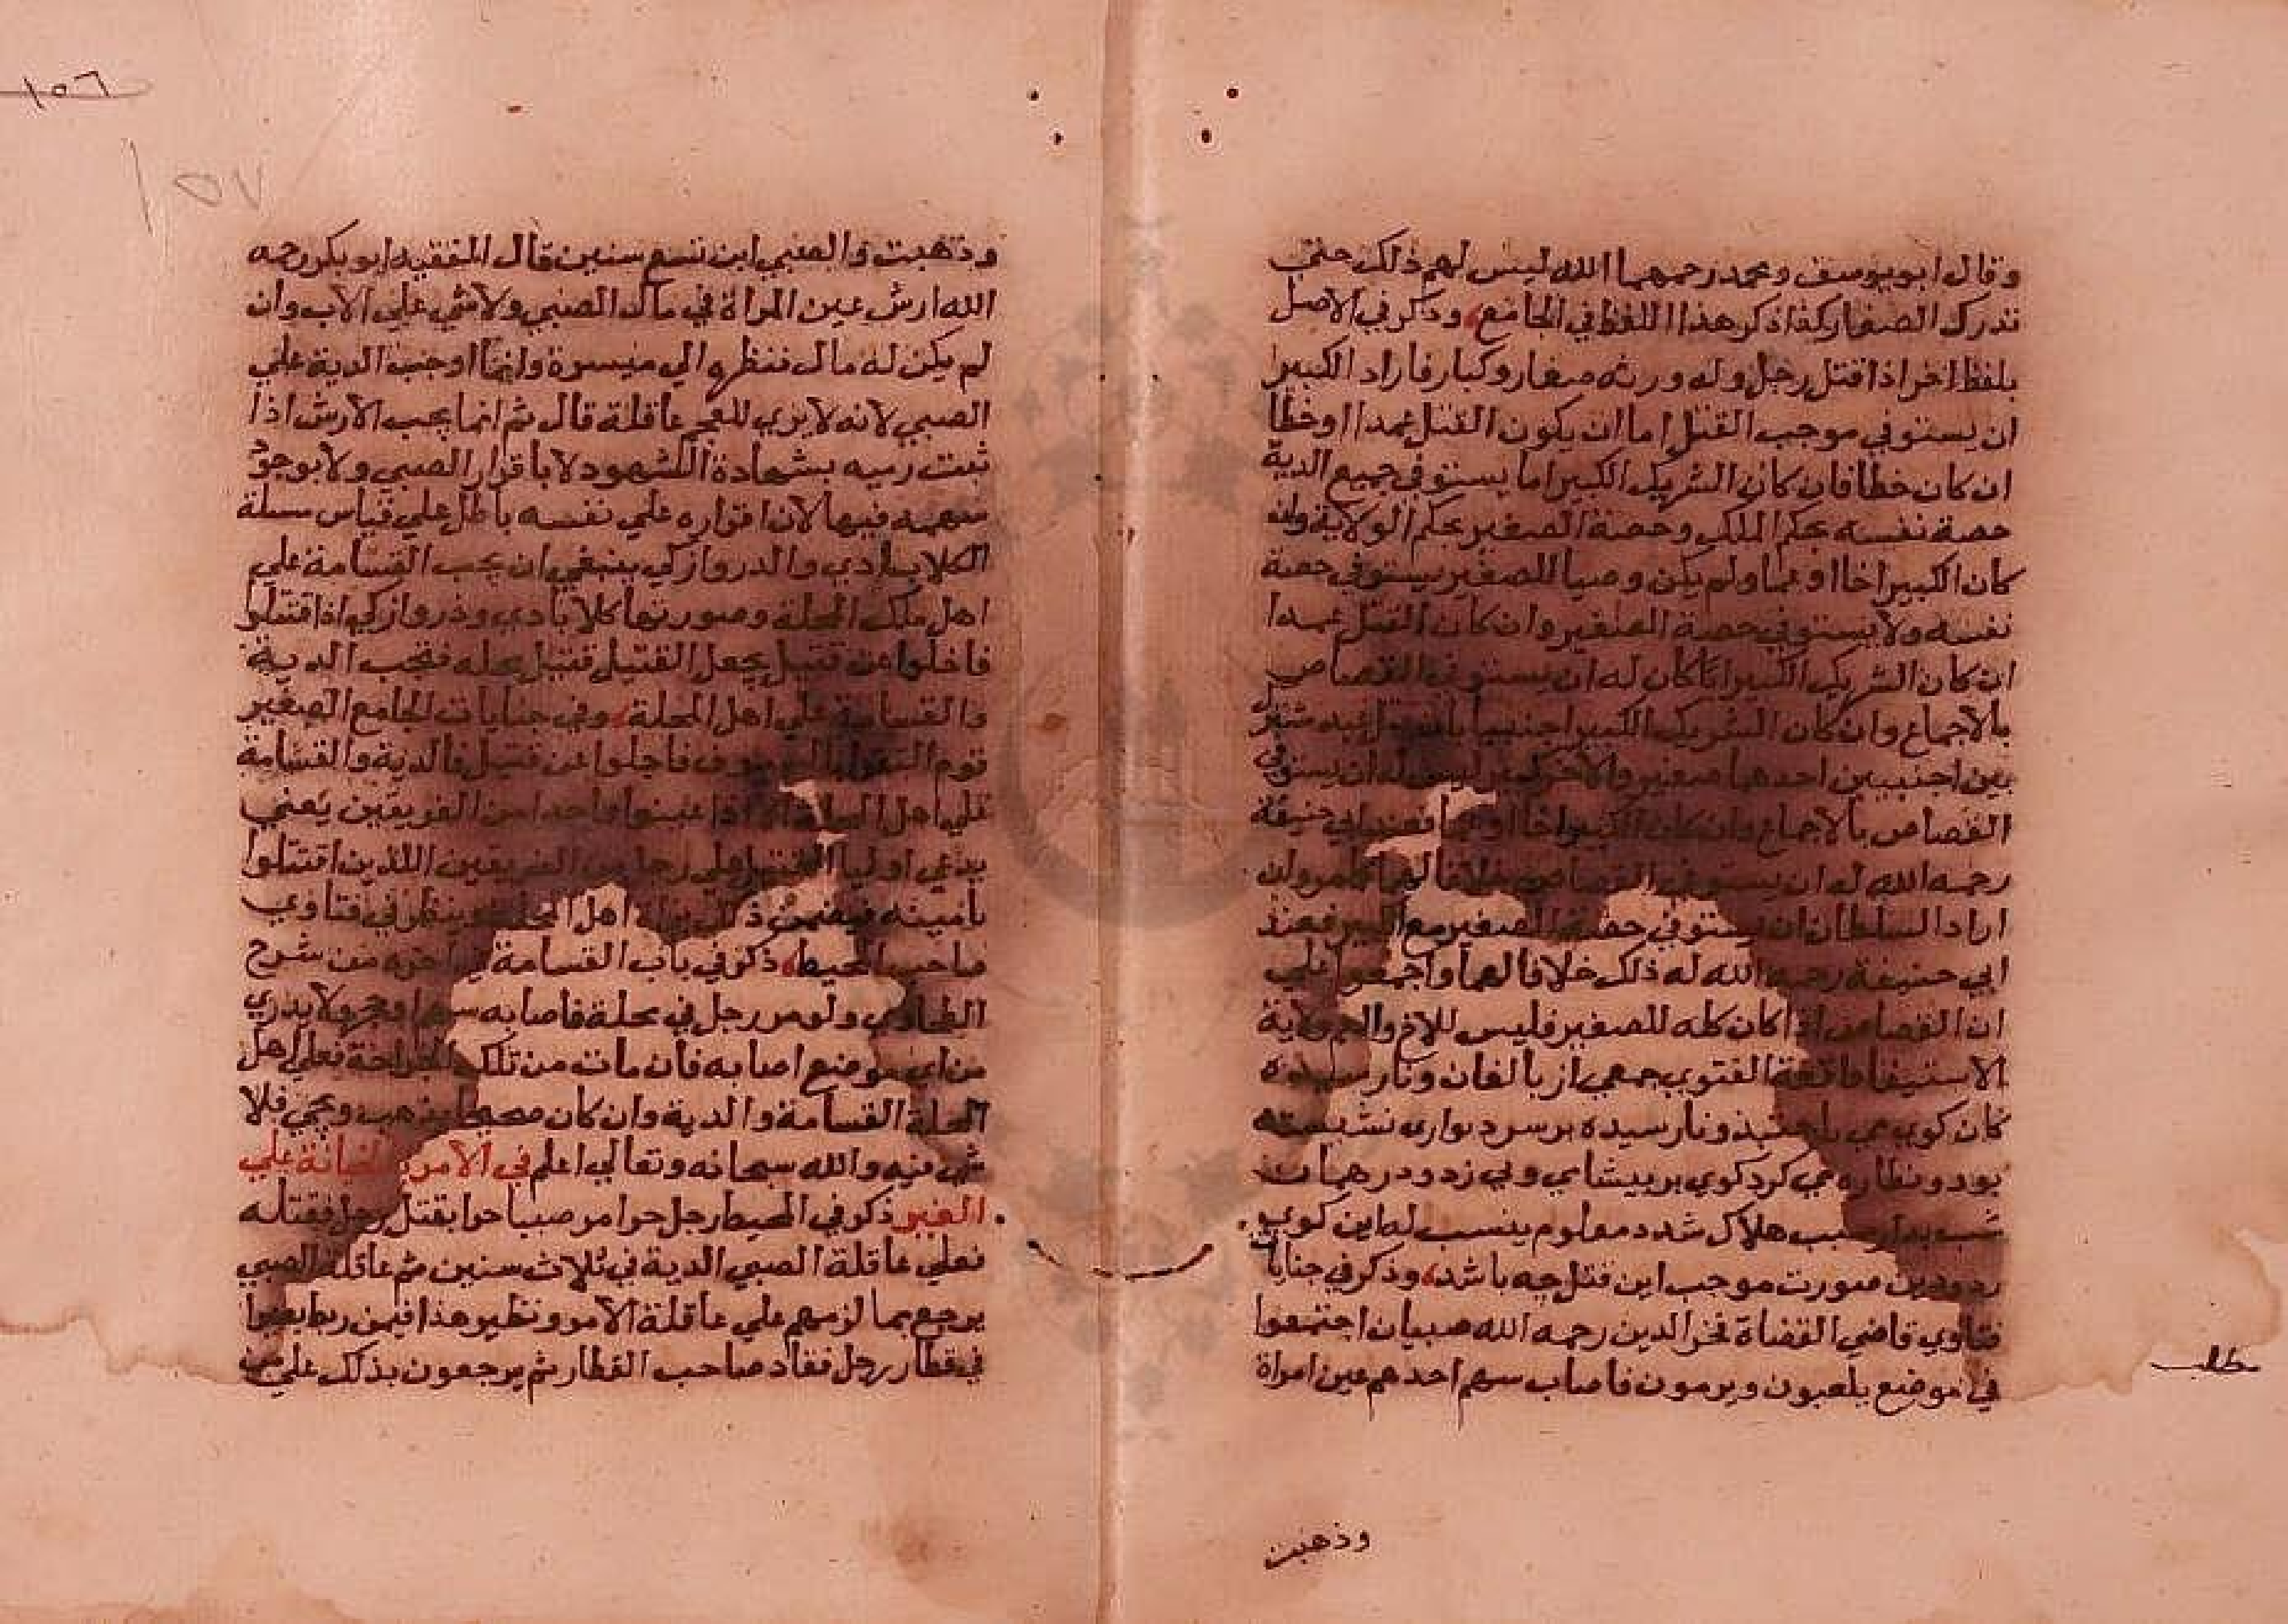 وقال ابو يوسف ومحمد رحمهما الله ليس لهم ذلك حتى
تدرك الصغار كذا ذكر هذا اللفظ في الجامع، وذكر في الاصل
بلفظ اخر اذا قتل رجل وله ورثه صغار وكبار فاراد الكبير
ان يستوفي موجب القتل اما ان يكون القتل عمدا او خطا
ان كان خطا فان كان الشريك الكبير اما يستوفي جميع الدية
حصة نفسه بحكم الملك وحصة الصغير بحكم الولاية وان
كان الكبير اخا او عما ولم يكن وصيا للصغير يستوفي حصة
نفسه ولا يستوفي حصة الصغير وان كان القتل عمدا
ان كان الشريك الكبير ابا كان له ان يستوفي القصاص
بالاجماع وان كان الشريك الكبير اجنبيا بان قتل عبد مشترك
بين اجنبيين احدهما صغير والاخر كبير ليس له ان يستوفي
القصاص بالاجماع وان كان الكبير اخا او عما فعند ابي حنيفة
رحمه الله له ان يستوفي القصاص خلافا لهما وان
اراد السلطان ان يستوفي حصة الصغير مع الكبير فعند
ابي حنيفة رحمه الله له ذلك خلافا لهما واجمعوا على
ان القصاص اذا كان كله للصغير فليس للاخ والعم ولاية
الاستيفا واقعة الفتوي جمعي از بالغان ونارسيده
كان كوي مي باختند ونارسيده بر سر ديواري نشسته
بود ونظاره مي كرد كوي بر پيشاني وي زد ودر همان
شب بدان سبب هلاك شد ومعلوم نيست كه اين كوي
زد ودرين صورت موجب اين قتل چه باشد، وذكر في جنايات
فتاوي قاضي القضاة فخر الدين رحمه الله صبيان اجتمعوا
في موضع يلعبون ويرمون فاصاب سهم احدهم عين امراة
وذهبت
مطلب
١٥٦
١٥٧
وذهبت والصبي ابن تسع سنين قال الفقيه ابو بكر رحمه
الله ارش عين المراة في مال الصبي ولا شي على الاب وان
لم يكن له مال فنظرة الي ميسرة وانما اوجب الدية علي
الصبي لانه لا يري للعجم عاقلة قال ثم انما يجب الارش اذا
ثبت رميه بشهادة الشهود لا باقرار الصبي ولا بوجود
سهمه فيها لان اقراره علي نفسه باطل علي قياس مسلة
الكلابادي والدروازكي ينبغي ان يجب القسامة علي
اهل ملك المحلة وصورتها كلابادي ودروازكي اذا اقتتلوا
فاجلوا عن قتيل يجعل القتيل قتيل محله فتجب الدية
والقسامة علي اهل المحلة، وفي جنايات الجامع الصغير
قوم التقوا بالسيوف فاجلوا عن قتيل فالدية والقسامة
علي اهل المحلة الا اذا عينوا واحدا من الفريقين يعني
يدعي اوليا القتيل علي رجل من الفريقين اللذين اقتتلوا
اهل المحلة وينظر في فتاوي
صاحب المحيط، ذكر في باب القسامة في اخره من شرح
الطحاوي ولو مر رجل في محلة فاصابه سهم او حجر ولا يدري
من اي موضع اصابه فان مات من تلك الجراحة فعلي اهل
المحلة القسامة والدية وان كان صحيحا يذهب ويجي فلا
شي فيه والله سبحانه وتعالي اعلم في الامر بالجناية علي
الغير ذكر في المحيط رجل حر امر صبيا حرا بقتل رجل فقتله
فعلي عاقلة الصبي الدية في ثلاث سنين ثم عاقلة الصبي
يرجع بما لزمهم علي عاقلة الامر ونظير هذا فيمن ربط بعيرا
في قطار رجل فقاد صاحب القطار ثم يرجعون بذلك علي من